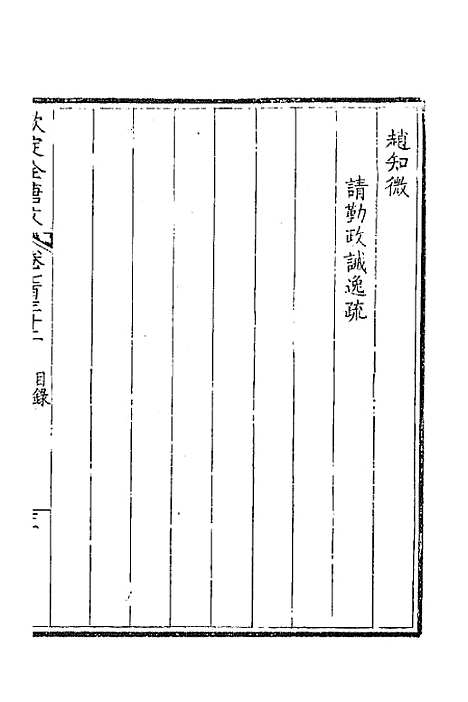 趙知微
請勤政誡逸疏
欽定全唐文 卷七百三十二 目錄